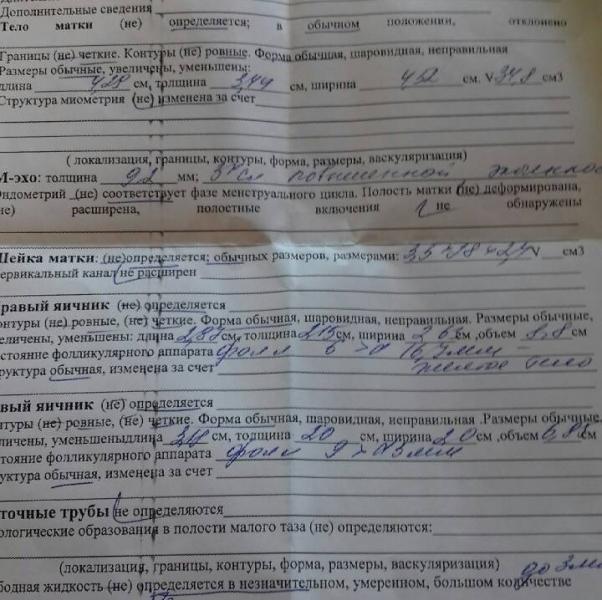 Дополнительные сведения
Тело матки (не) определяется; в обычном положении, отклонено
Границы (не) четкие. Контуры (не) ровные. Форма обычная, шаровидная, неправильная
Размеры обычные, увеличены, уменьшены:
длина 4,28 см, толщина 3,44 см, ширина 4,52 см. V 34,8 см3
Структура миометрия (не) изменена за счет
(локализация, границы, контуры, форма, размеры, васкуляризация)
М-эхо: толщина 9,2 мм; повышенной
Эндометрий (не) соответствует фазе менструального цикла. Полость матки (не) деформирована,
не) расширена, полостные включения не обнаружены
Шейка матки: (не)определяется; обычных размеров, размерами: V см3
цервикальный канал не расширен
равый яичник (не) определяется
онтуры (не) ровные, (не) четкие. Форма обычная, шаровидная, неправильная. Размеры обычные,
еличены, уменьшены: длина 2,87 см, толщина 2,15 см, ширина см, объем 8,8 см
стояние фолликулярного аппарата фолл 6 желтое тело
руктура обычная, изменена за счет
вый яичник (не) определяется
нтуры (не) ровные, (не) четкие. Форма обычная, шаровидная, неправильная .Размеры обычные,
личены, уменьшены длина см, толщина 20 см, ширина 2,0 см, объем 6,8 см
тояние фолликулярного аппарата фолл мм
уктура обычная, изменена за счет
точные трубы не определяются
ологические образования в полости малого таза (не) определяются:
(локализация, границы, контуры, форма, размеры, васкуляризация) до 3 мл
бодная жидкость (не) определяется в незначительном, умеренном, большом количестве